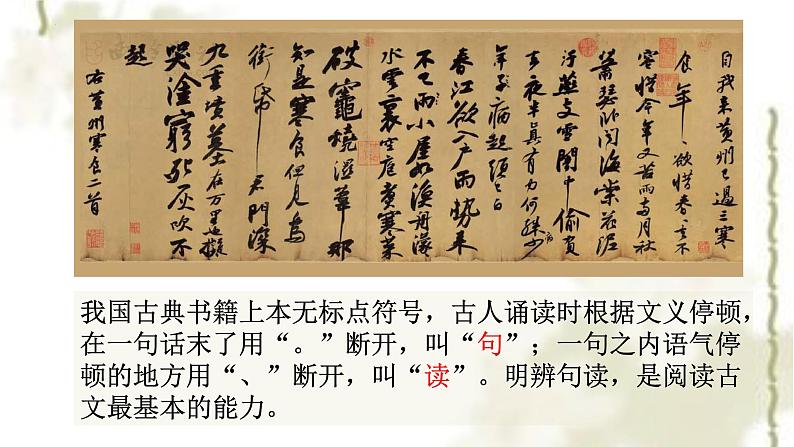 自我来黄州已過三寒
食年〻欲惜春〻去不
容惜今年又苦雨两月秋
蕭瑟卧聞海棠花泥
汙燕支雪闇中偷負
去夜半真有力何殊少
年子病起頭已白
春江欲入户雨勢来
不已雨小屋如漁舟濛
水雲裏空庖煮寒菜
破竈燒濕葦那
知是寒食但見烏
銜帋君門深
九重墳墓在万里也擬
哭塗窮死灰吹不
起
右黄州寒食二首
我国古典书籍上本无标点符号，古人诵读时根据文义停顿，
在一句话末了用“。”断开，叫“句”；一句之内语气停
顿的地方用“、”断开，叫“读”。明辨句读，是阅读古
文最基本的能力。